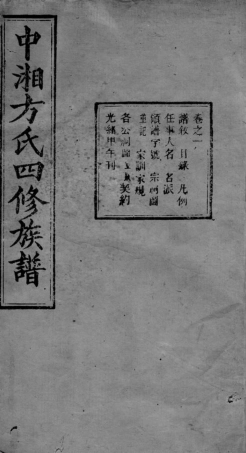 中湘方氏四修族譜
卷之一
譜敘 目錄 凡例
任事人名 名派
領譜字號 宗祠圖
記 家訓家規
各公祠圖 契約
光緒甲午刊